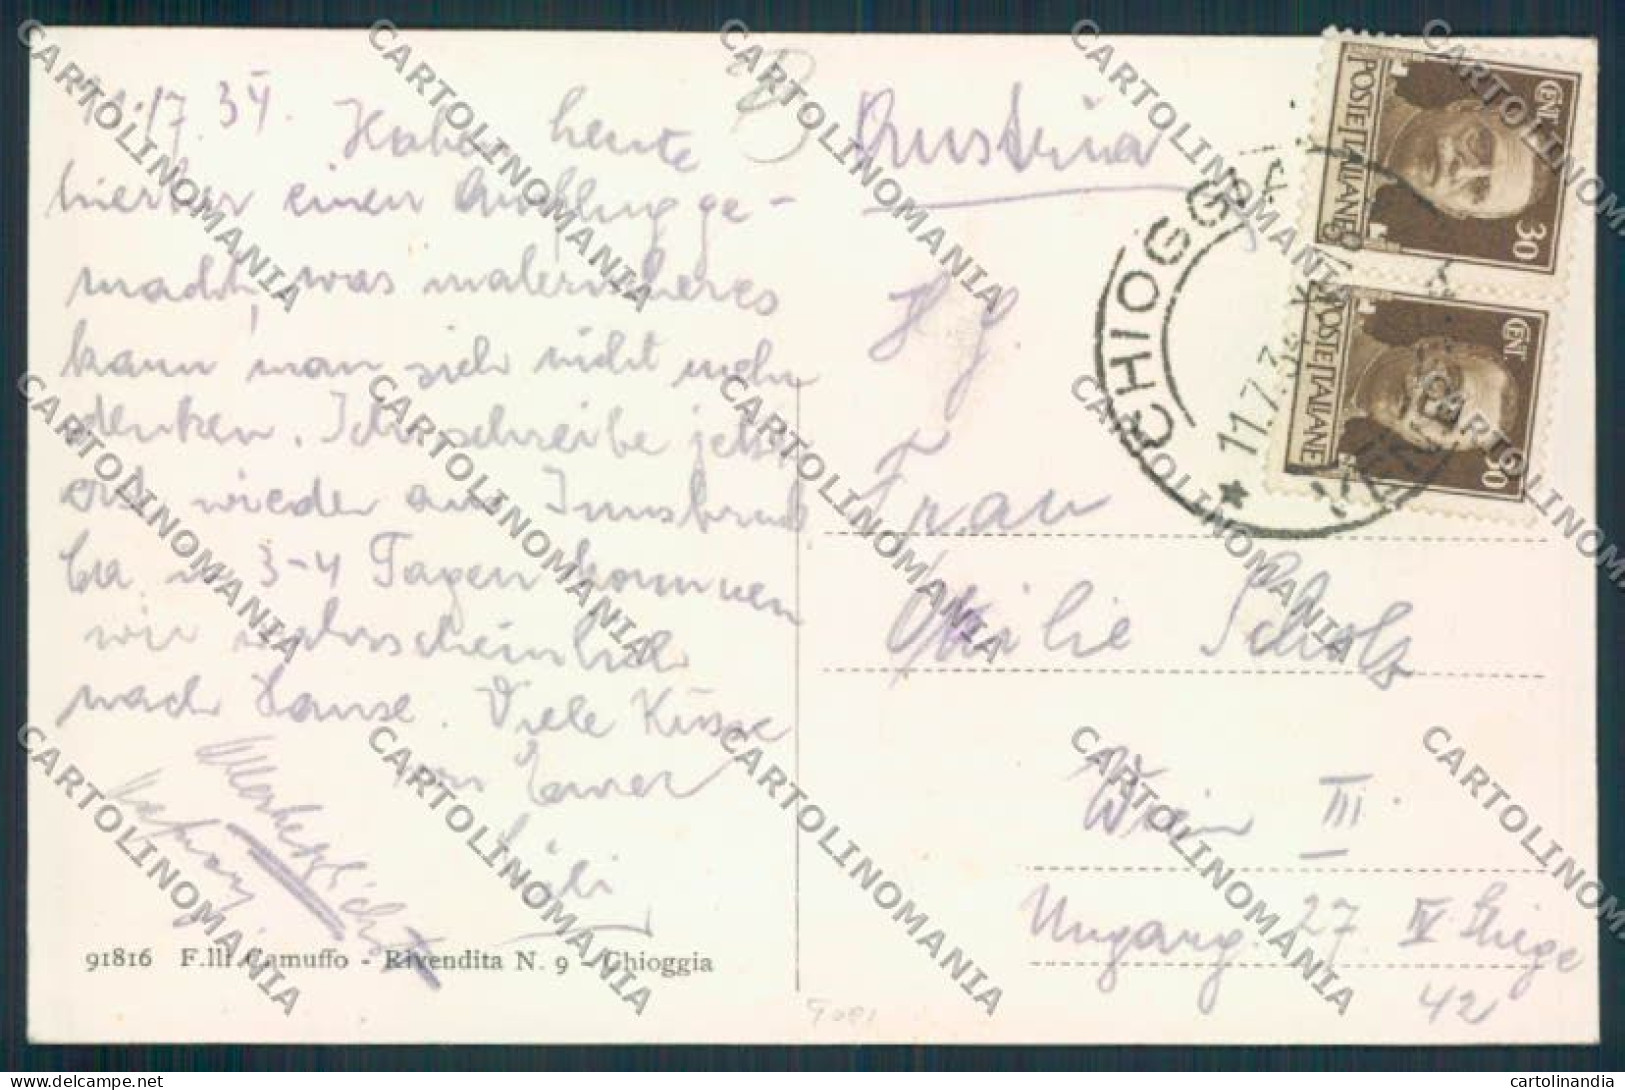 11.7.34. Habe heute
hierher einen Ausflug ge-
macht, was malerischeres
kann man sich nicht mehr
denken. Ich schreibe jetzt
erst wieder aus Innsbruck
ca in 3-4 Tagen kommen
wir wahrscheinlich
nach Hause. Viele Küsse
von Eurer
91816 F.lli Camuffo - Rivendita N. 9 - Chioggia
Austria
Frau
Scholz
Wien III
Ungarg. 27 IV Stiege
42
CHIOGGIA
11.7.34
POSTE ITALIANE
CENT 30
POSTE ITALIANE
CENT 30
CARTOLINOMANIA
delcampe.net
cartolinandia